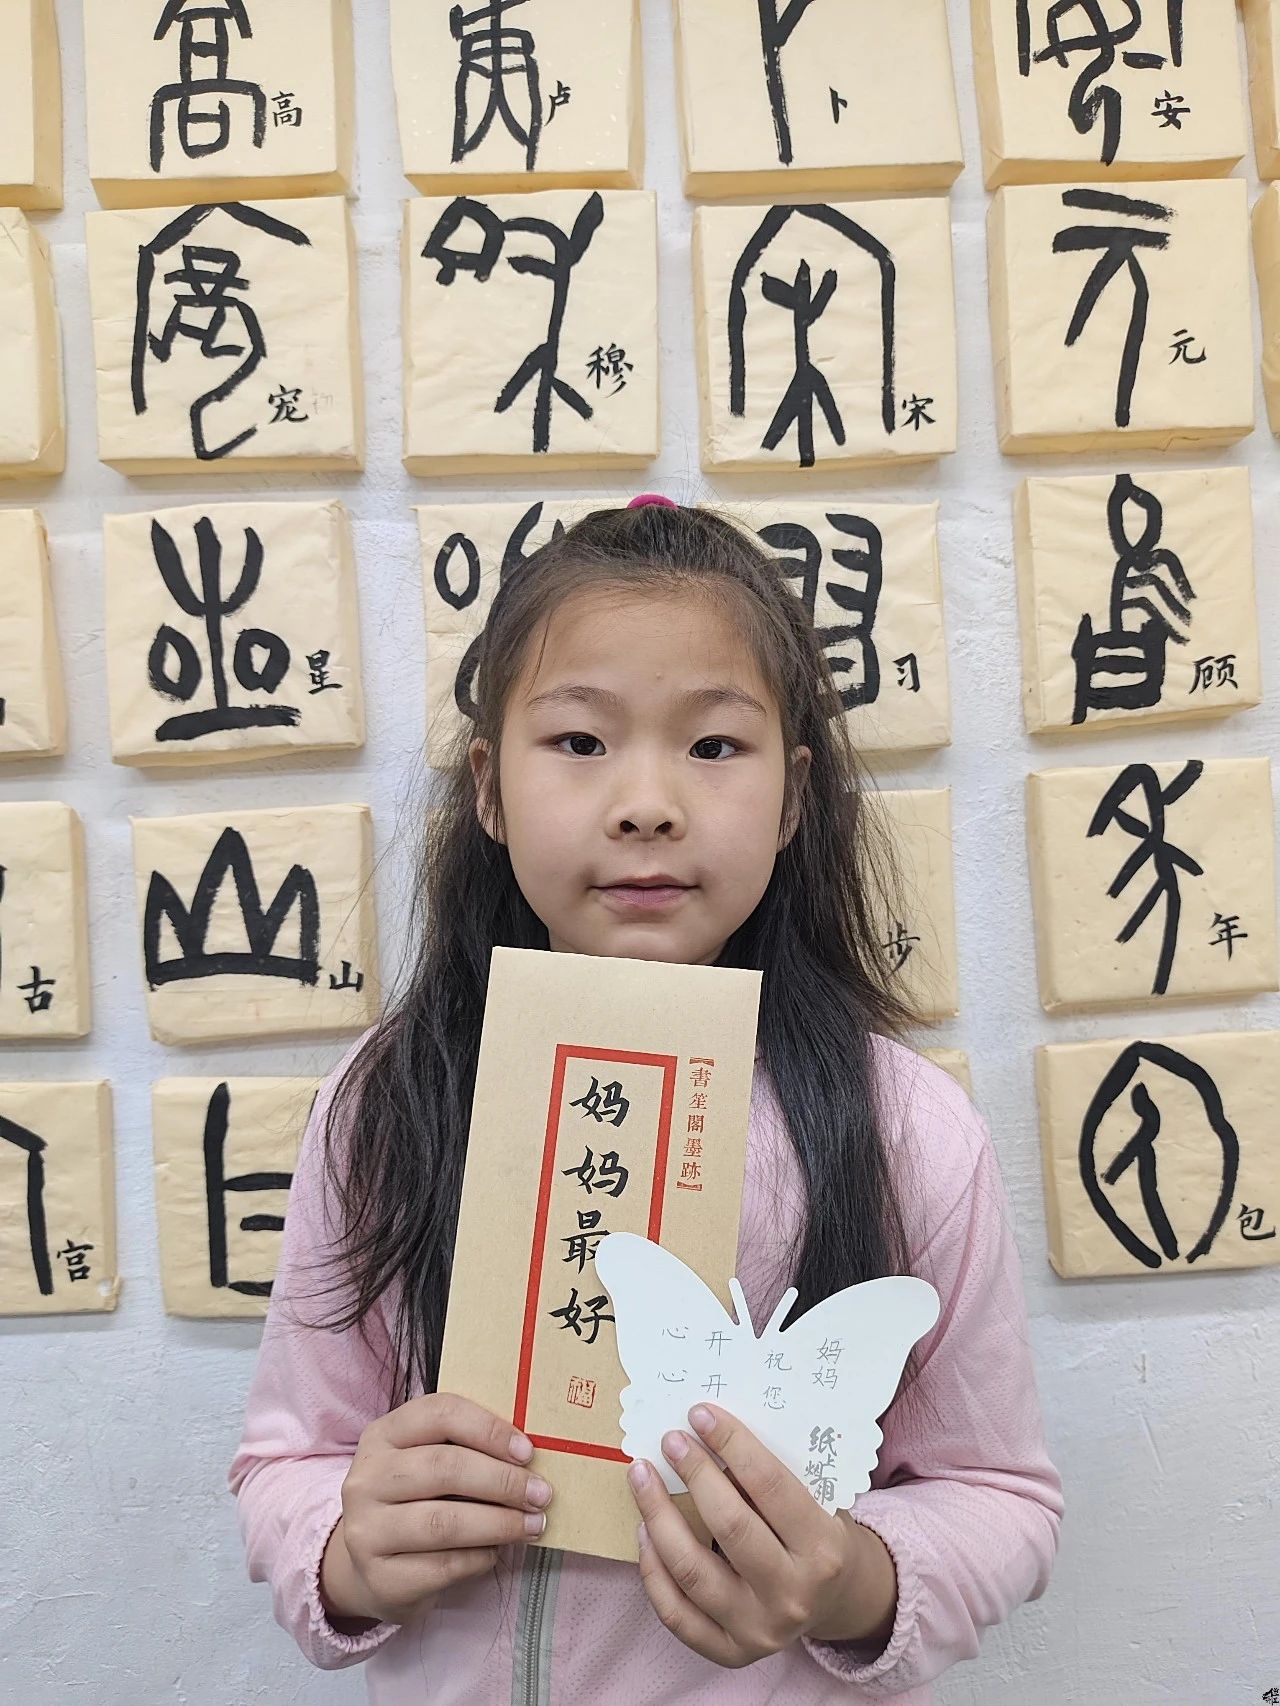 高
卢
卜
安
宠
穆
宋
元
星
习
顾
古
山
步
年
宫
包
【書笙閣墨跡】
妈妈最好
妈妈
祝您
开开
心心
纸上烟雨